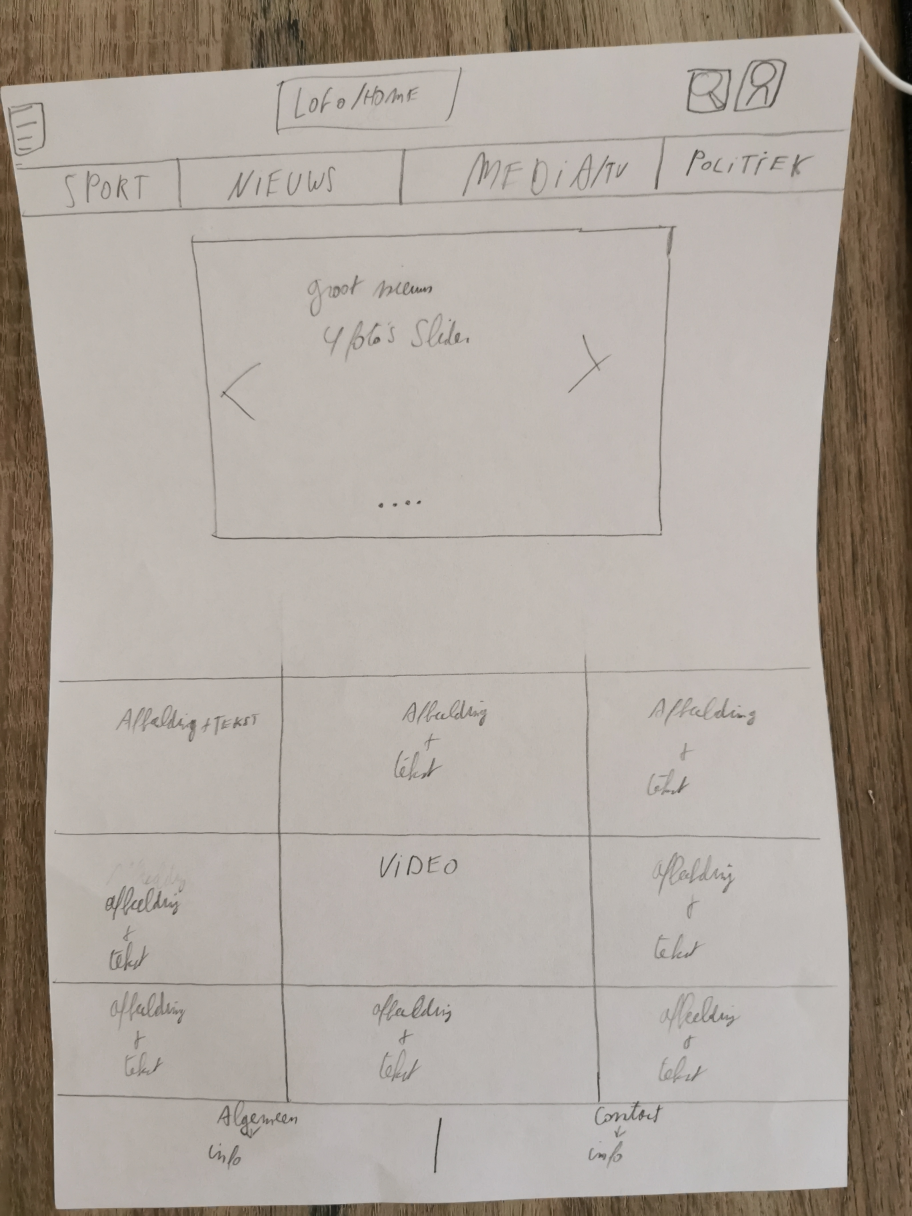 LOGO/HOME
SPORT
NIEUWS
MEDIA/TV
POLITIEK
groot nieuws
4 foto's Slider
Afbeelding + TEKST
Afbeelding
+
tekst
Afbeelding
+
tekst
afbeelding
+
tekst
VIDEO
afbeelding
+
tekst
afbeelding
+
tekst
afbeelding
+
tekst
afbeelding
+
tekst
Algemeen
info
Contact
info